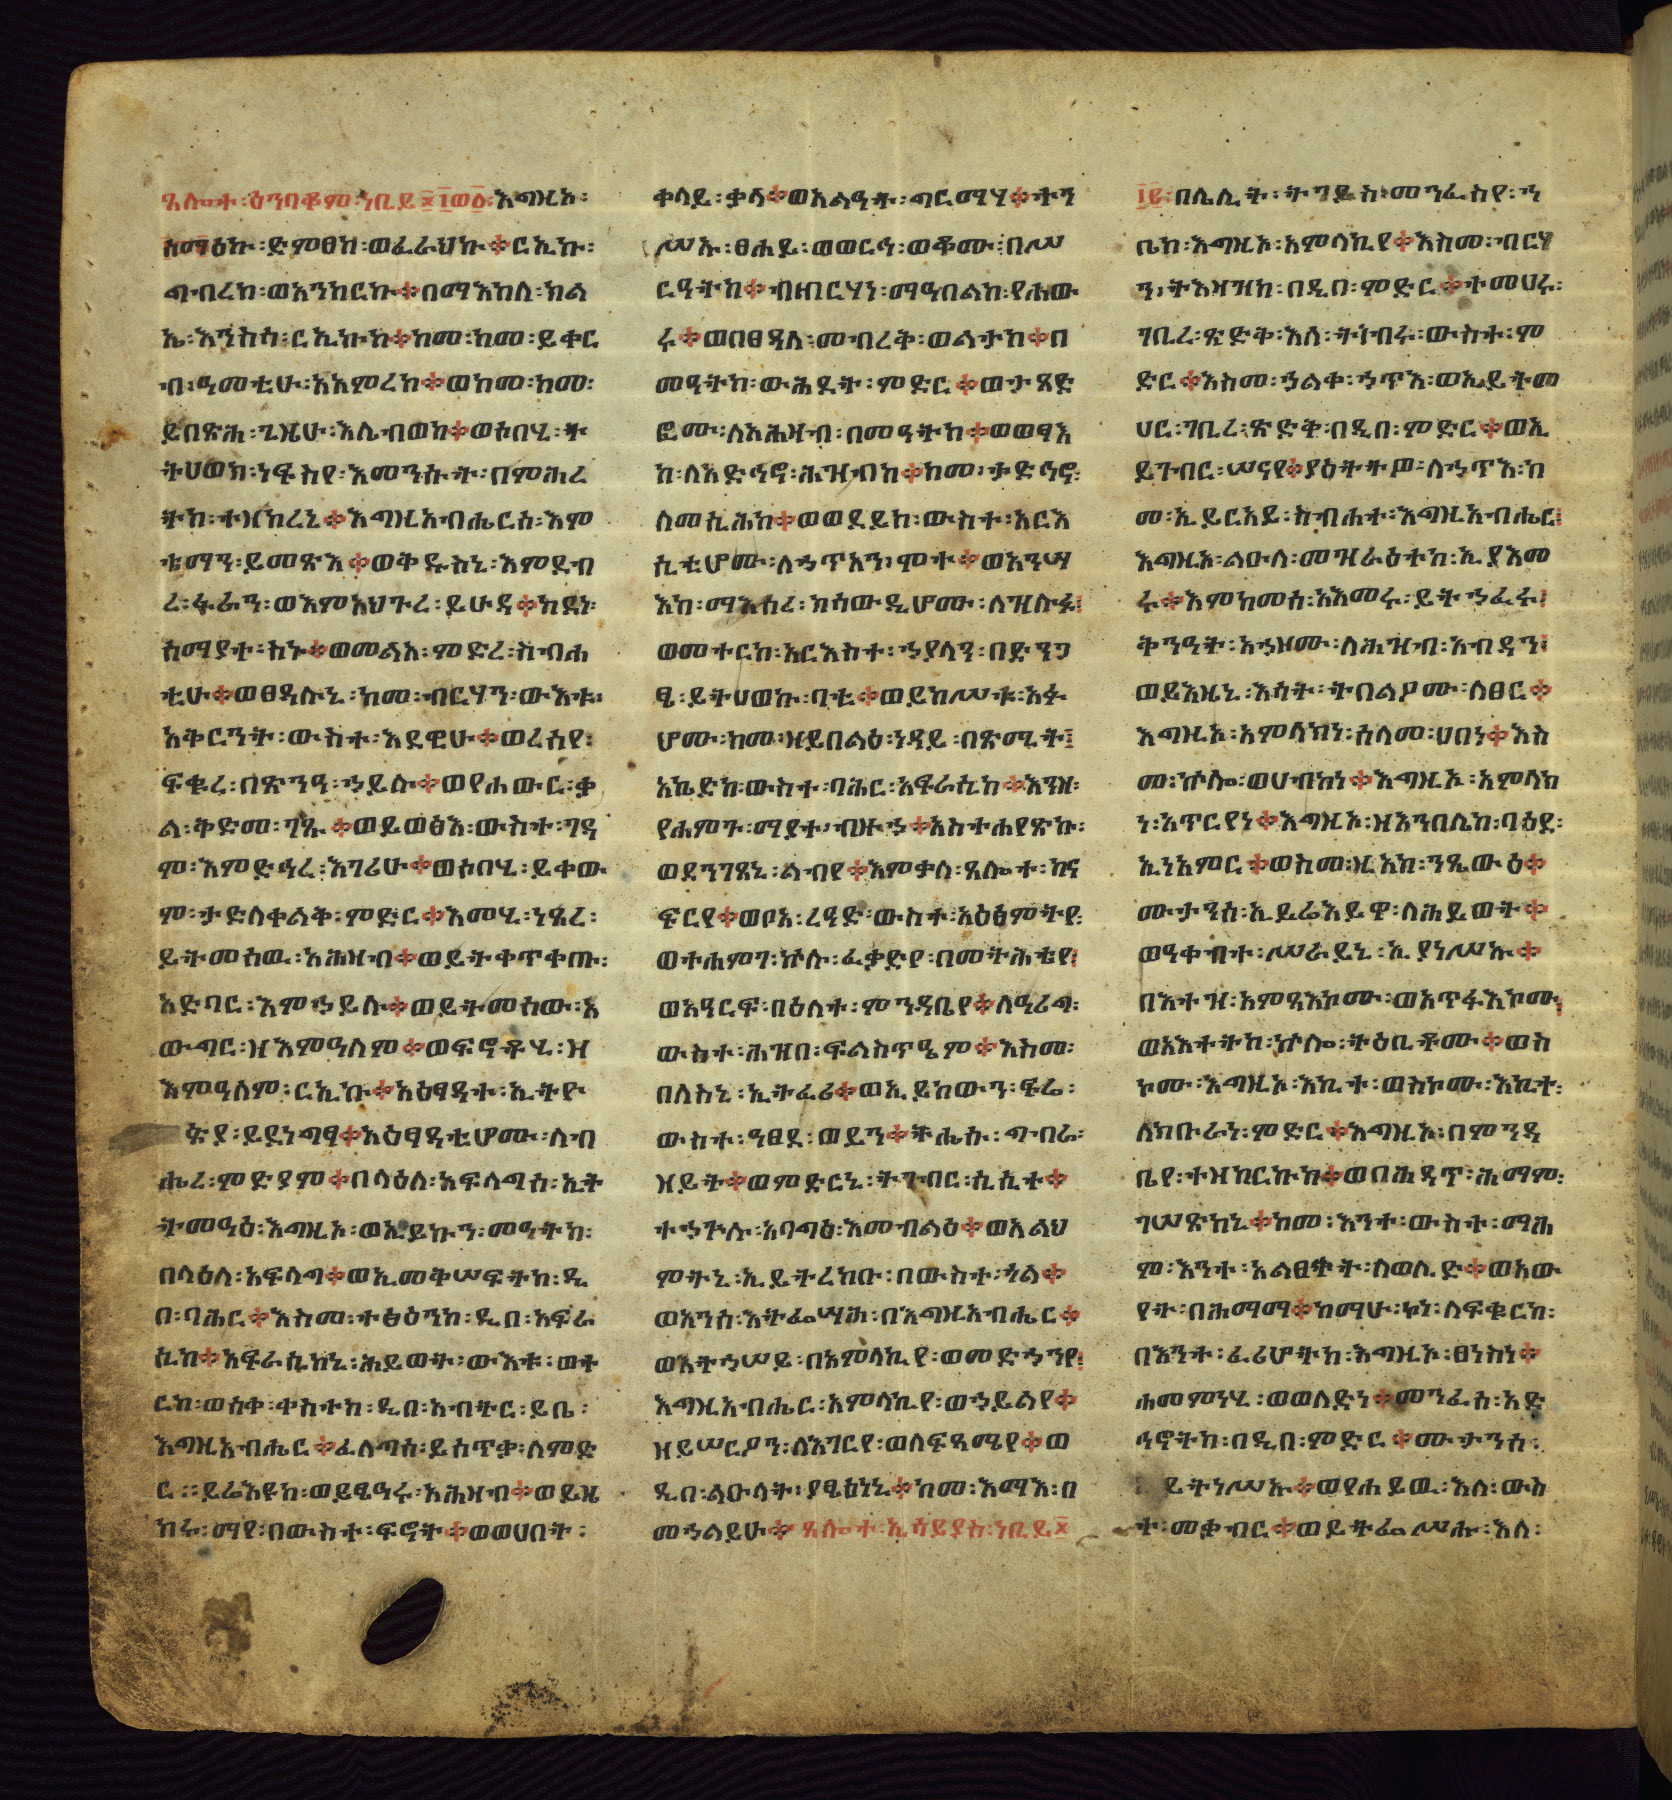 ጸሎተ፡ዕንባቆም፡ነቢይ፡፲ወ፬፡እግዚኦ፡
ሰማዕኩ፡ድምፀከ፡ወፈራህኩ።ርኢኩ፡
ግብረከ፡ወአንከርኩ።በማእከለ፡ክል
ኤ፡እንስሳ፡ርኢኩከ።ከመ፡ከመ፡ይቀር
ብ፡ዓመቲሁ፡አአምረከ።ወከመ፡ከመ፡
ይበጽሕ፡ጊዜሁ፡እሌብወከ።ወሶበሂ፡ት
ትሀወክ፡ነፍስየ፡እመንሱት፡በምሕረ
ትከ፡ተዝከረኒ።እግዚአብሔርሰ፡እም
ቴማን፡ይመጽእ።ወቅዱስኒ፡እምደብ
ረ፡ፋራን፡ወእምአህጉረ፡ይሁዳ።ከደነ፡
ሰማያተ፡ስኑ።ወመልአ፡ምድረ፡ስብሐ
ቲሁ።ወፀዳሉኒ፡ከመ፡ብርሃን፡ውእቱ፡
አቅርንት፡ውስተ፡እደዊሁ።ወረሰየ፡
ፍቁረ፡በጽንዓ፡ኀይሉ።ወየሐውር፡ቃ
ል፡ቅድመ፡ገጹ።ወይወፅእ፡ውስተ፡ገዳ
ም፡እምድኅረ፡እገሪሁ።ወሶበሂ፡ይቀው
ም፡ታድለቀልቅ፡ምድር።እመሂ፡ነጸረ፡
ይትመሰዉ፡አሕዛብ።ወይትቀጥቀጡ፡
አድባር፡እምኀይሉ።ወይትመሰው፡አ
ውግር፡ዘእምዓለም።ወፍኖቶሂ፡ዘ
እምዓለም፡ርኢኩ።አዕፃዳተ፡ኢትዮ
ጵያ፡ይደነግፃ።አዕፃዳቲሆሙ፡ለብ
ሔረ፡ምድያም።በላዕለ፡አፍላግሰ፡ኢት
ትመዓዕ፡እግዚኦ፡ወኢይኩን፡መዓትከ፡
በላዕለ፡አፍላግ።ወኢመቅሠፍትከ፡ዲ
በ፡ባሕር።እስመ፡ተፅዕንከ፡ዲበ፡አፍራ
ሲከ።አፍራሲከኒ፡ሕይወት፡ውእቱ፡ወተ
ርከ፡ወሰቀ፡ቀስተከ፡ዲበ፡አብትር፡ይቤ፡
እግዚአብሔር።ፈለግሰ፡ይሰጥቃ፡ለምድ
ር፡፡ይሬእዩከ፡ወይፄዓሩ፡አሕዛብ።ወይዜ
ከሩ፡ማየ፡በውስተ፡ፍኖት።ወወሀበት፡
ቀላይ፡ቃላ።ወአልዓት፡ግርማሃ።ትን
ሣኡ፡ፀሐይ፡ወወርኅ፡ወቆሙ፡በሥ
ርዓትከ።ብዘብርሃነ፡ማዓበልከ፡የሐው
ሩ።ወበፀዳለ፡መብረቅ፡ወልታከ።በ
መዓትከ፡ውሕደት፡ምድር።ወታጸድ
ፎሙ፡ለአሕዛብ፡በመዓትከ።ወወፃእ
ከ፡ለአድኅኖ፡ሕዝብከ።ከመ፡ታድኅኖ፡
ለመሲሕከ።ወወደይከ፡ውስተ፡አርእ
ስቲሆሙ፡ለኀጥአን፡ሞተ።ወአንሣ
እከ፡ማእሰረ፡ክሳውዲሆሙ፡ለዝሉፉ፡
ወመተርከ፡አርእስተ፡ኀያላን፡በድንጋ
ፄ፡ይትሀወኩ፡ባቲ።ወይከሥቱ፡አፉ
ሆሙ፡ከመ፡ዘይበልዕ፡ነዳይ፡በጽሚት፡
አኬድከ፡ውስተ፡ባሕር፡አፍራሲከ።እንዘ፡
የሐምግ፡ማያተ፡ብዙኀ።አስተሐየጽኩ፡
ወደንገጸኒ፡ልብየ።እምቃለ፡ጸሎተ፡ከና
ፍርየ።ወቦአ፡ረዓድ፡ውስተ፡አዕፅምትየ፡
ወተሐምገ፡ኵሉ፡ፈቃድየ፡በመትሕቴየ፡
ወአዓርፍ፡በዕለተ፡ምንዳቤየ።ለዓሪግ፡
ውስተ፡ሕዝበ፡ፍልስጥዔም።እስመ፡
በለስኒ፡ኢትፈሪ።ወኢይከውን፡ፍሬ፡
ውስተ፡ዓፀደ፡ወይን።ትሔሱ፡ግብራ፡
ዘይት።ወምድርኒ፡ትገብር፡ሲሲተ።
ተኀጕሉ፡አባግዕ፡እመብልዕ።ወአልህ
ምትኒ፡ኢይትረከቡ፡በውስተ፡ጎል።
ወአንሰ፡እትፌሣሕ፡በእግዚአብሔር።
ወእትኀሠይ፡በአምላኪየ፡ወመድኀንየ፡
እግዚአብሔር፡አምላኪየ፡ወኀይልየ።
ዘይሠርዖን፡ለእገርየ፡ወለፍጻሜየ።ወ
ዲበ፡ልዑላት፡ያፄዕነኒ።ከመ፡እማእ፡በ
መኀልይሁ።ጸሎተ፡ኢሳይያስ፡ነቢይ፡
፲፭፡በሌሊት፡ትገይስ፡መንፈስየ፡ኀ
ቤከ፡እግዚኦ፡አምላኪየ።እስመ፡ብርሃ
ን፡ትእዛዝከ፡በዲበ፡ምድር።ተመሀሩ፡
ገቢረ፡ጽድቅ፡እለ፡ትነብሩ፡ውስተ፡ም
ድር።እስመ፡ኀልቀ፡ኀጥእ፡ወኢይትመ
ሀር፡ገቢረ፡ጽድቅ፡በዲበ፡ምድር።ወኢ
ይገብር፡ሠናየ።ያዕትትዎ፡ለኀጥእ፡ከ
መ፡ኢይርአይ፡ስብሐተ፡እግዚአብሔር፡
እግዚኦ፡ልዑለ፡መዝራዕተከ፡ኢያእመ
ሩ።እምከመሰ፡አእመሩ፡ይትኀፈሩ፡
ቅንዓት፡አኀዞሙ፡ለሕዝብ፡አብዳን፡
ወይእዜኒ፡እሳት፡ትበልዖሙ፡ለፀር።
እግዚኦ፡አምላክነ፡ሰላመ፡ሀበነ።እስ
መ፡ኵሎ፡ወሀብከነ።እግዚኦ፡አምላክ
ነ፡አጥርየነ።እግዚኦ፡ዘእንበሌከ፡ባዕደ፡
ኢነአምር።ወስመ፡ዚአከ፡ንጼውዕ።
ሙታንሰ፡ኢይሬእይዋ፡ለሕይወት።
ወዓቀብተ፡ሥራይኒ፡ኢያነሥኡ።
በእተዝ፡አምጻእኮሙ፡ወአጥፋእኮሙ፡
ወአእተትከ፡ኵሎ፡ትዕቢቶሙ።ወስ
ኮሙ፡እግዚኦ፡እኪተ፡ወስኮሙ፡እኪተ፡
ለክቡራነ፡ምድር።እግዚኦ፡በምንዳ
ቤየ፡ተዝከርኩከ።ወበሕዳጥ፡ሕማም፡
ገሠጽከኒ።ከመ፡እንተ፡ውስተ፡ማሕ
ም፡እንተ፡አልፀቀት፡ለወሊድ።ወአው
የት፡በሕማማ።ከማሁ፡ኮነ፡ለፍቁርከ፡
በእንተ፡ፈሪሆትከ፡እግዚኦ፡ፀነስነ።
ሐመምነሂ፡ወወለድነ።መንፈሰ፡አድ
ኅኖትከ፡በዲበ፡ምድር።ሙታንሰ፡
ይትነሥኡ።ወየሐይዉ፡እለ፡ውስ
ተ፡መቃብር።ወይትፌሥሑ፡እለ፡